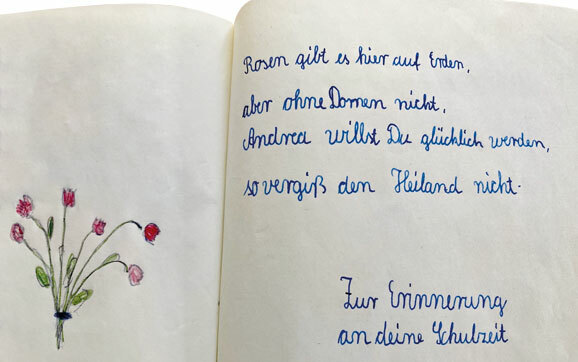 Rosen gibt es hier auf Erden,
aber ohne Dornen nicht,
Andrea willst Du glücklich werden,
so vergiß den Heiland nicht.
Zur Erinnerung
an deine Schulzeit